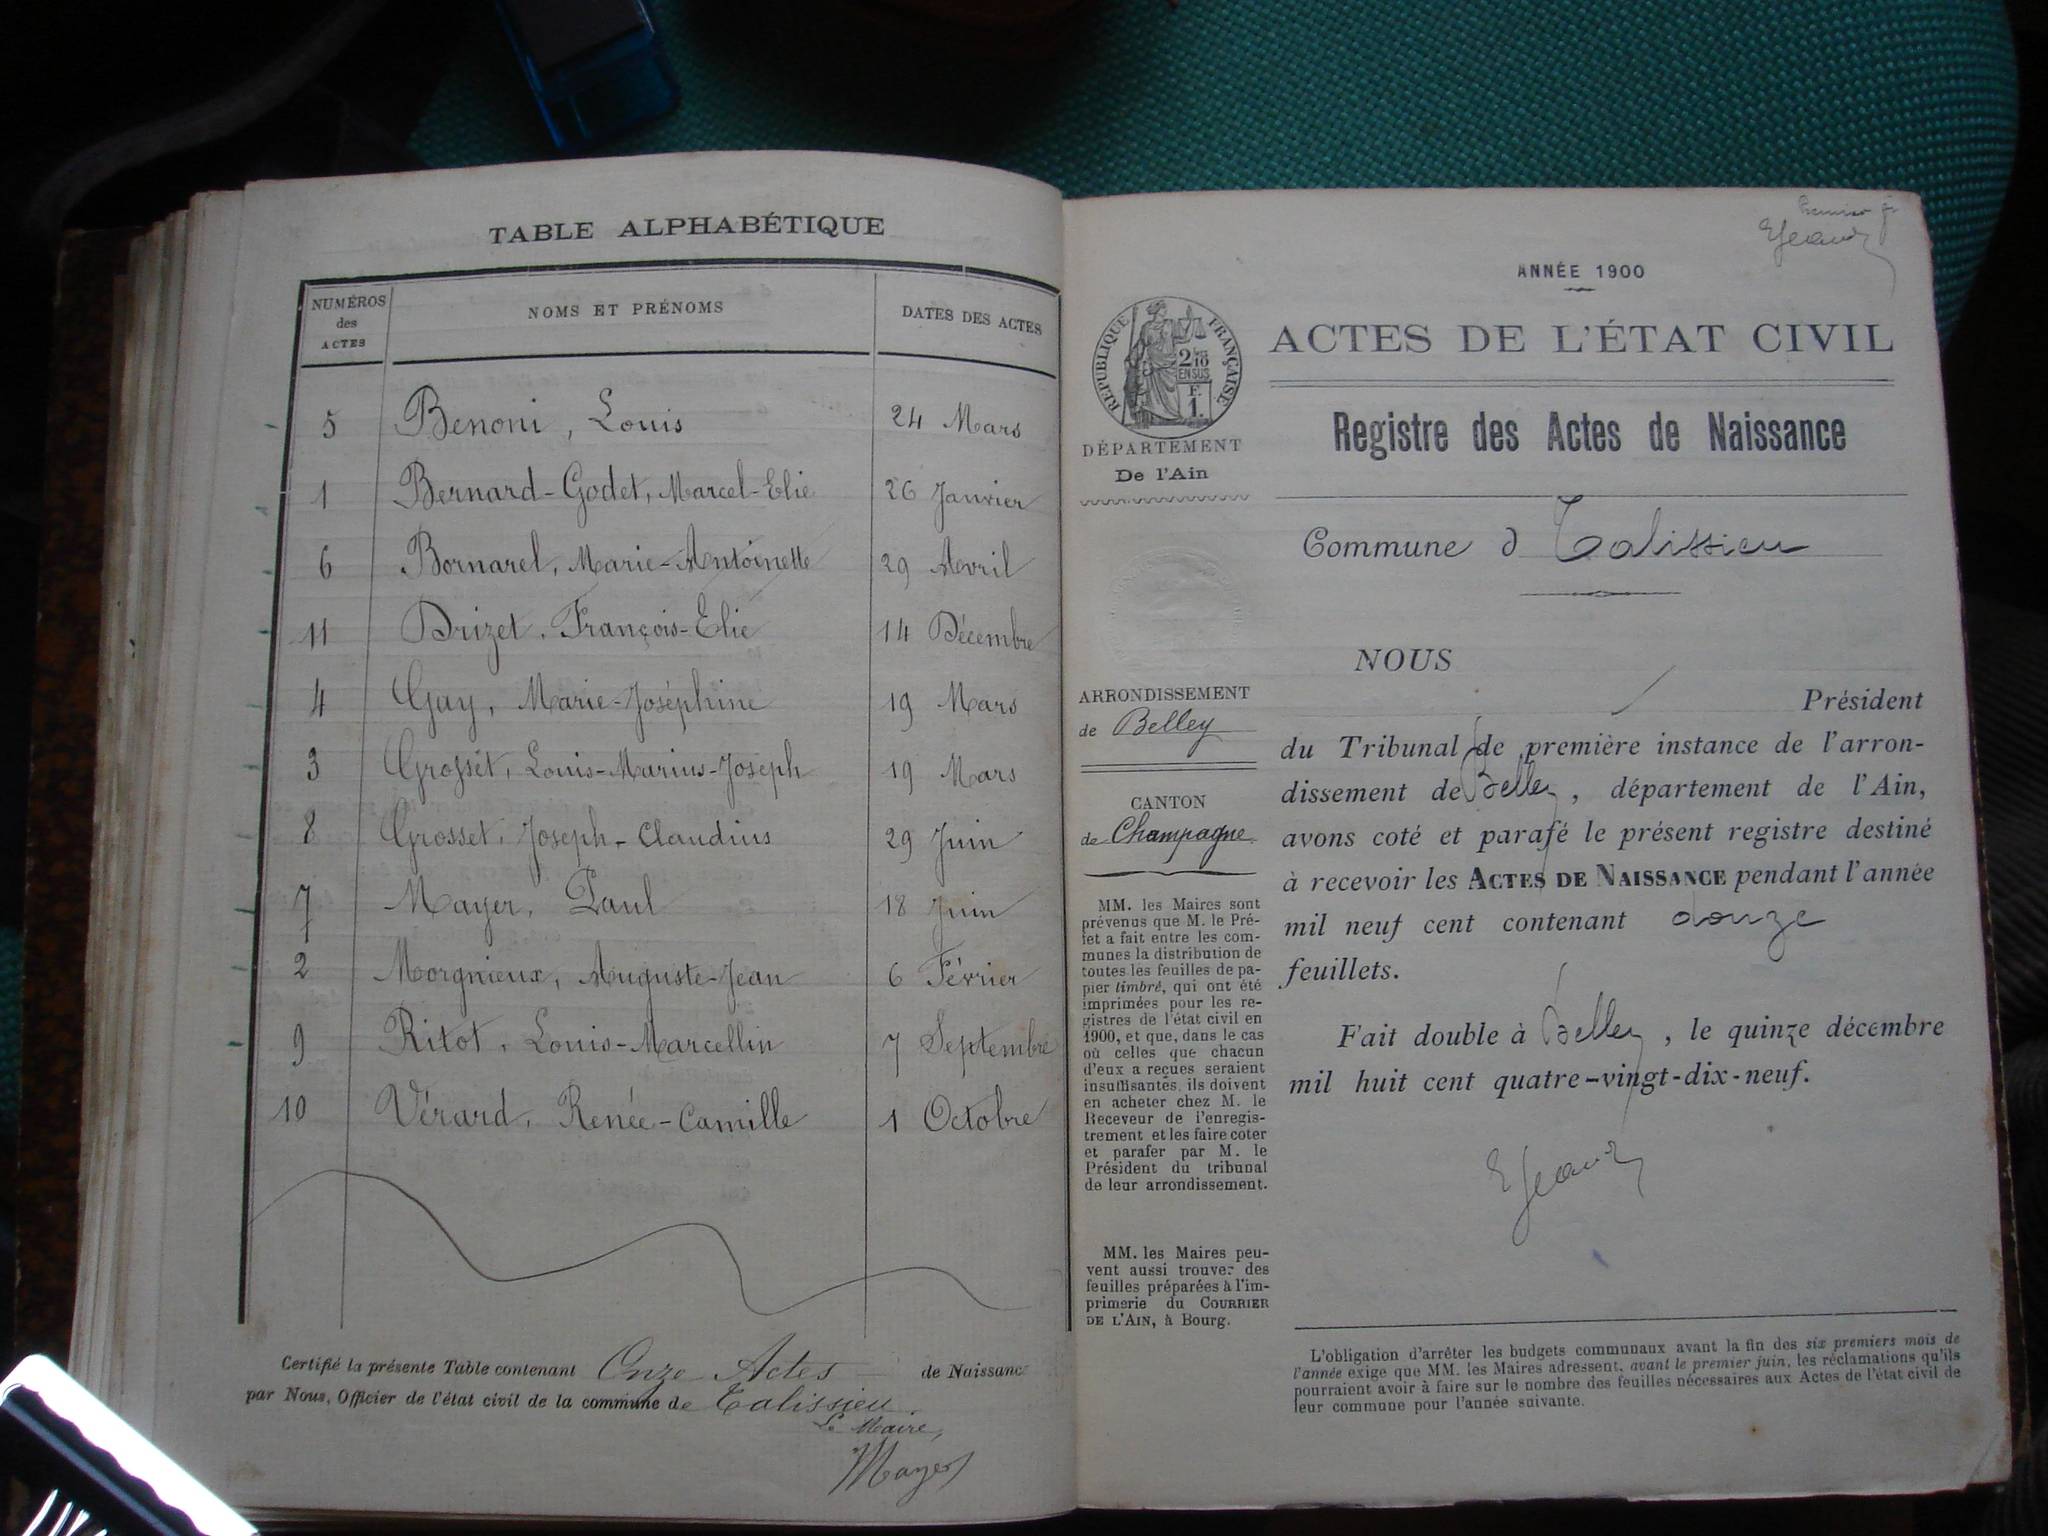 TABLE ALPHABÉTIQUE
NUMÉROS des ACTES
NOMS ET PRÉNOMS
DATES DES ACTES
5 Benoni, Louis 24 Mars
1 Bernard-Godet, Marcel-Elie 26 Janvier
6 Bornarel, Marie-Antoinette 29 Avril
11 Drizet, François-Elie 14 Décembre
4 Gay, Marie-Joséphine 19 Mars
3 Grosset, Louis-Marius-Joseph 19 Mars
8 Grosset, Joseph-Claudius 29 Juin
7 Mayer, Paul 18 Juin
2 Morgnieux, Auguste-Jean 6 Février
9 Ritot, Louis-Marcellin 7 Septembre
10 Vérard, Renée-Camille 1 Octobre
Certifié la présente Table contenant Onze Actes de Naissance
par Nous, Officier de l'état civil de la commune de Talissieu.
Le Maire,
Mayer
Premier
ANNÉE 1900
RÉPUBLIQUE FRANÇAISE
2/10
EN SUS
F.
1.
DÉPARTEMENT
De l'Ain
ACTES DE L'ÉTAT CIVIL
Registre des Actes de Naissance
Commune d Talissieu
ARRONDISSEMENT
de Belley
CANTON
de Champagne
MM. les Maires sont
prévenus que M. le Pré-
fet a fait entre les com-
munes la distribution de
toutes les feuilles de pa-
pier timbré, qui ont été
imprimées pour les re-
gistres de l'état civil en
1900, et que, dans le cas
où celles que chacun
d'eux a reçues seraient
insuffisantes, ils doivent
en acheter chez M. le
Receveur de l'enregis-
trement et les faire coter
et parafer par M. le
Président du tribunal
de leur arrondissement.
MM. les Maires peu-
vent aussi trouver des
feuilles préparées à l'im-
primerie du COURRIER
DE L'AIN, à Bourg.
NOUS
Président
du Tribunal de première instance de l'arron-
dissement de Belley, département de l'Ain,
avons coté et parafé le présent registre destiné
à recevoir les ACTES DE NAISSANCE pendant l'année
mil neuf cent contenant douze
feuillets.
Fait double à Belley, le quinze décembre
mil huit cent quatre-vingt-dix-neuf.
L'obligation d'arrêter les budgets communaux avant la fin des six premiers mois de
l'année exige que MM. les Maires adressent, avant le premier juin, les réclamations qu'ils
pourraient avoir à faire sur le nombre des feuilles nécessaires aux Actes de l'état civil de
leur commune pour l'année suivante.